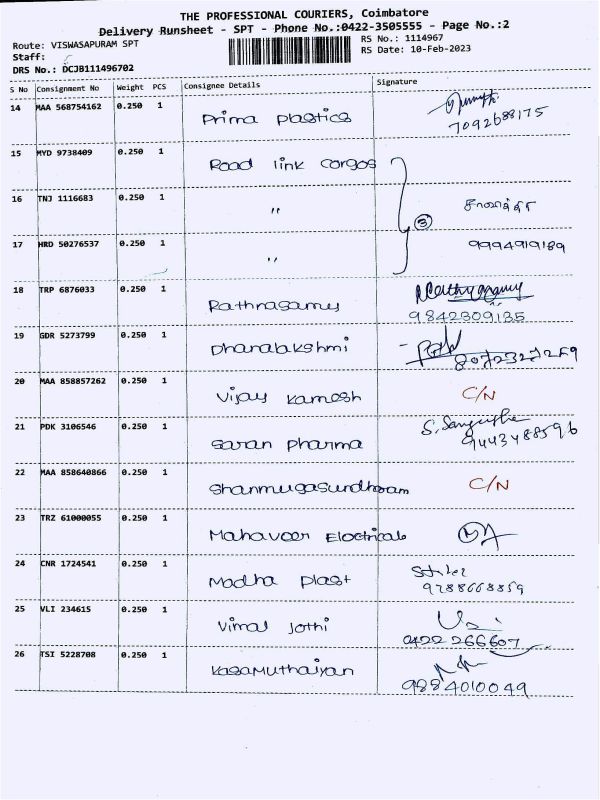 THE PROFESSIONAL COURIERS, Coimbatore
Delivery Runsheet - SPT - Phone No.:0422-3505555 - Page No.:2
Route: VISWASAPURAM SPT RS No.: 1114967
Staff: RS Date: 10-Feb-2023
DRS No.: DCJB111496702
S No Consignment No Weight PCS Consignee Details Signature
14 MAA 568754162 0.250 1 Prima Plastics
7092688175
15 MYD 9738409 0.250 1 Road link corgos
16 TNJ 1116683 0.250 1 "
3
17 HRD 50276537 0.250 1 " 9994919189
18 TRP 6876033 0.250 1 Rathnasamy
9842309135
19 GDR 5273799 0.250 1 Dhanalakshmi
8072327269
20 MAA 858857262 0.250 1 Vijay Kamesh C/N
21 PDK 3106546 0.250 1 Saran Pharma
9443488596
22 MAA 858640866 0.250 1 Shanmugasundharam C/N
23 TRZ 61000055 0.250 1 Mahaveer Electricals
24 CNR 1724541 0.250 1 Modha Plast
9788668859
25 VLI 234615 0.250 1 Vimal Jothi
0422 266607
26 TSI 5228708 0.250 1 Kasamuthaiyan
9884010049